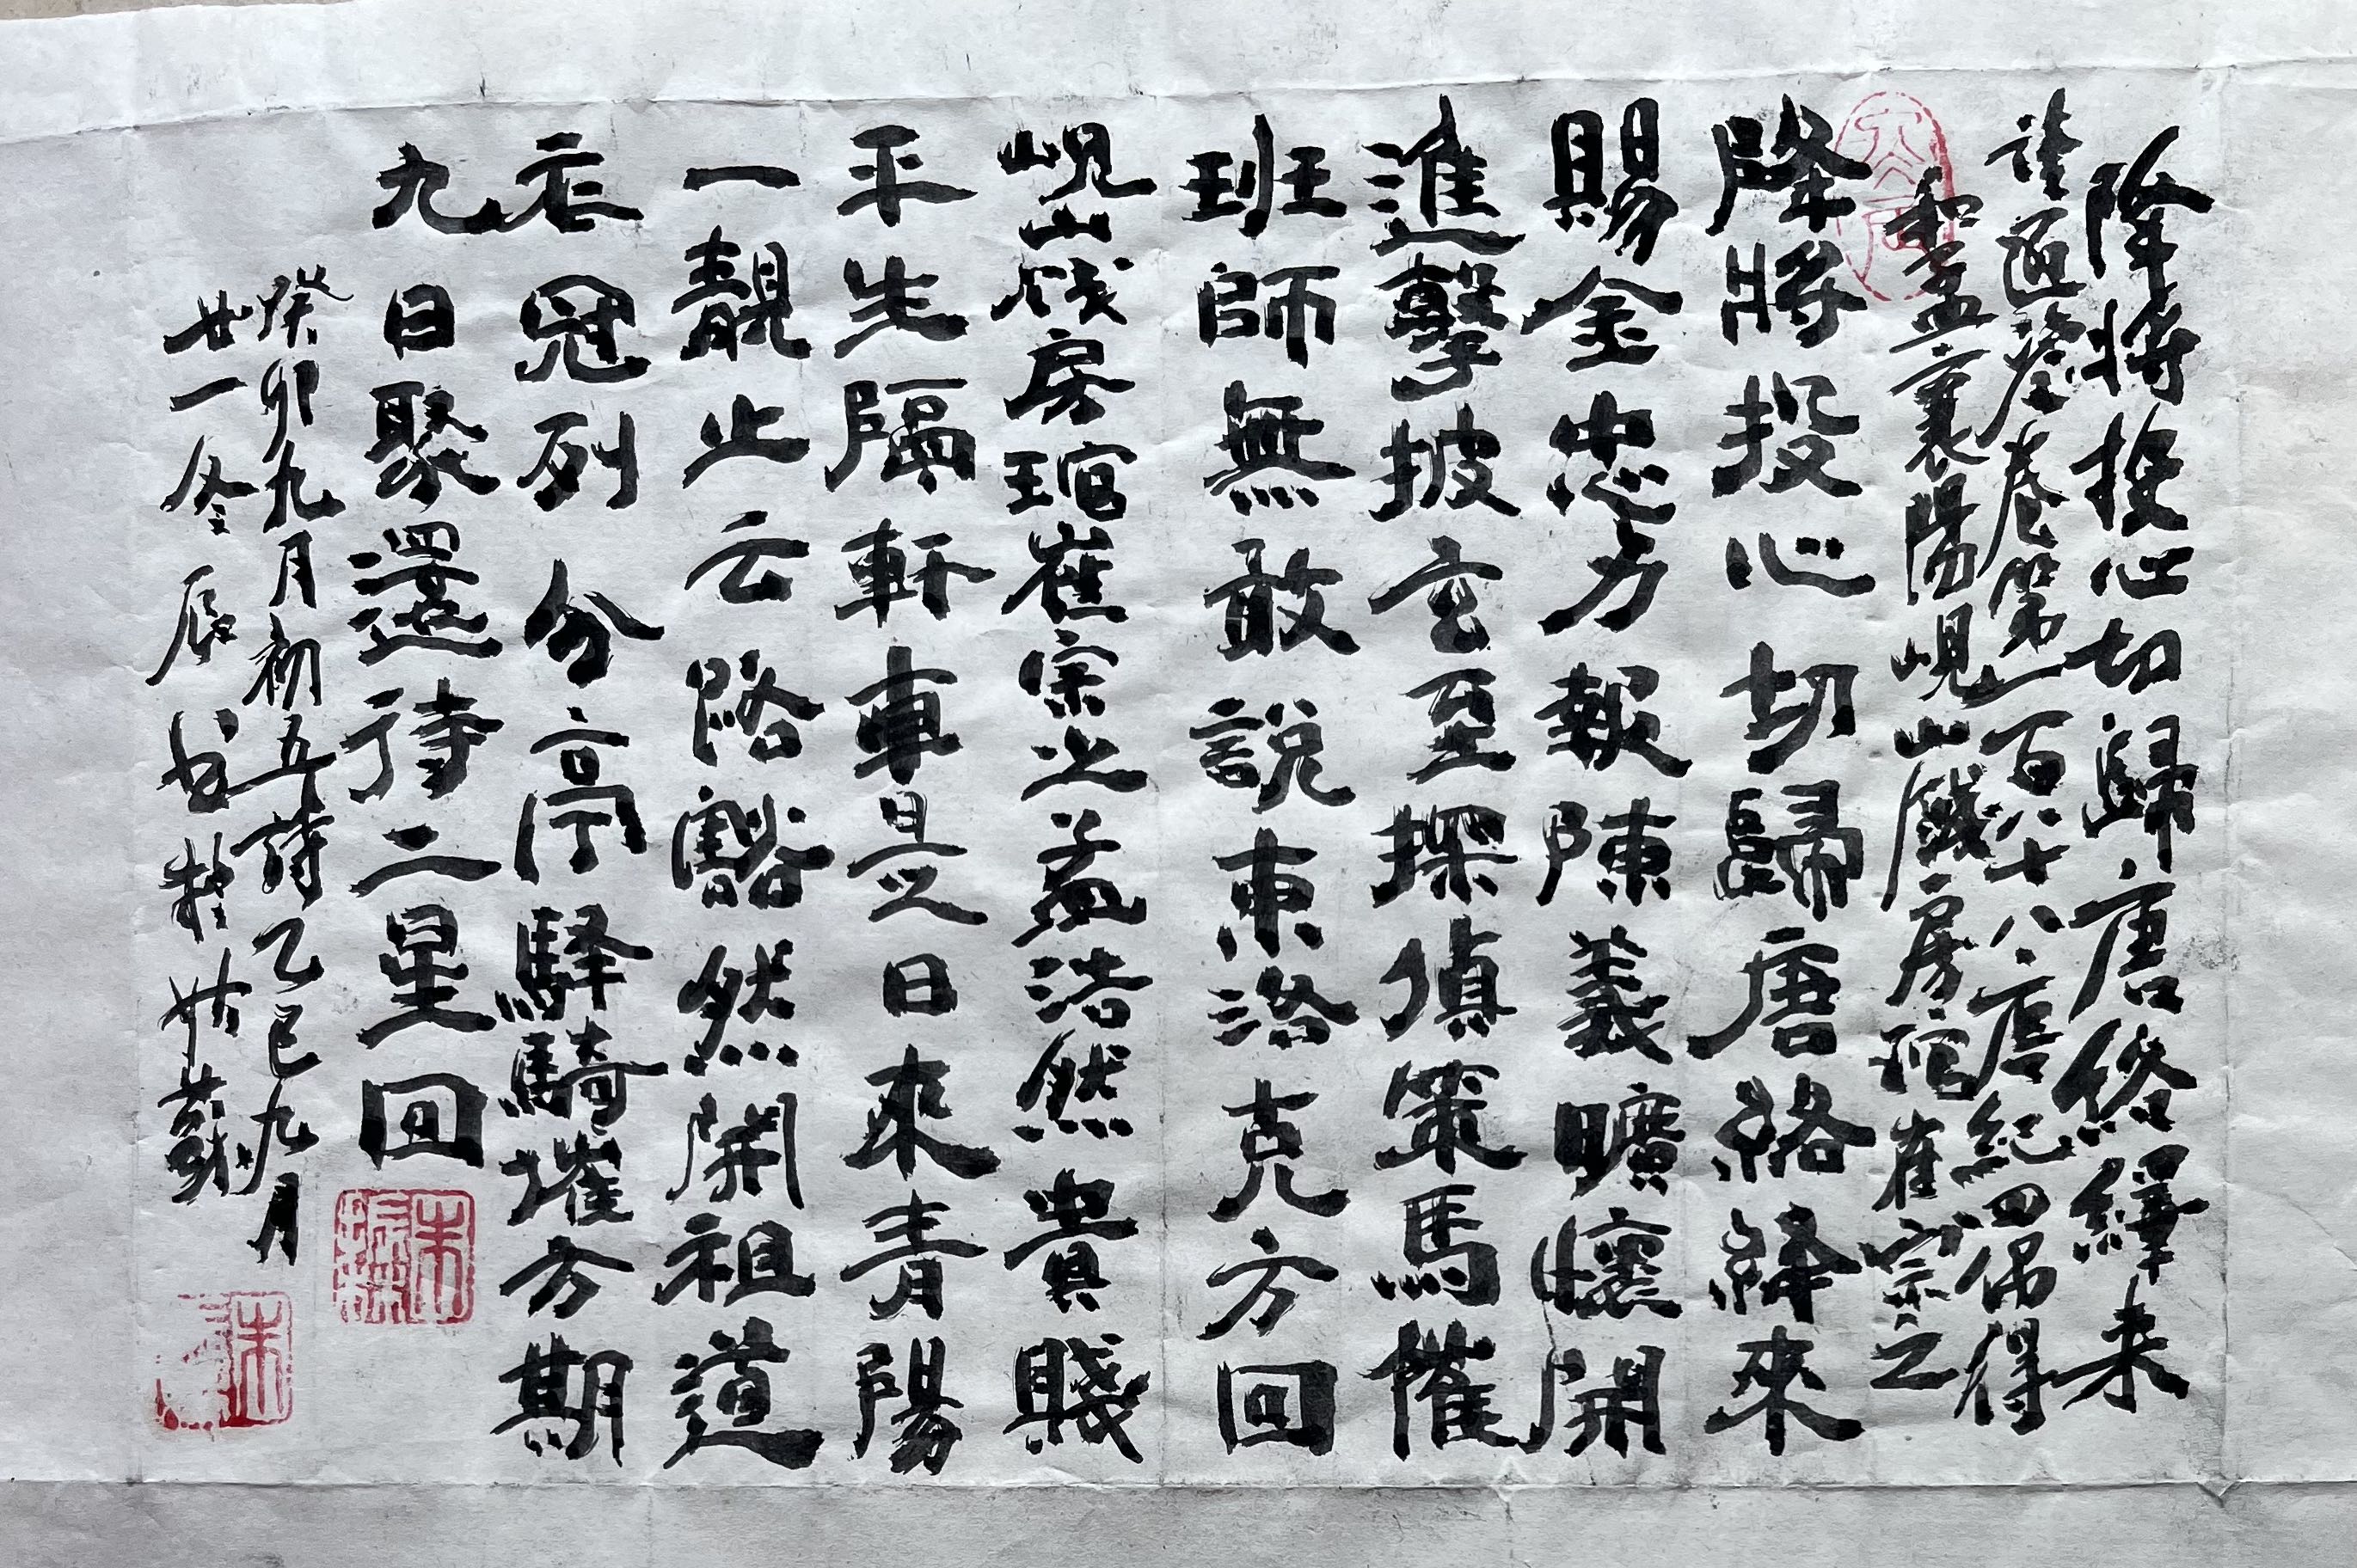 降將投心切歸唐絡繹來
讀通鑒卷第一百八十八唐紀四偶得
和孟襄陽峴山餞房琯崔宗之
降將投心切歸唐絡絳來
賜金忠力報陳義曠懷開
進擊披玄至探偵策馬催
班師無敢說東洛克方回
峴山餞房琯崔宗之孟浩然貴賤
平生隔軒車是日來青陽
一覯止云路豁然開祖道
衣冠列分亭驛騎摧方期
九日聚還待二星回
癸卯九月初五詩乙巳九月
廿一冬辰書於姑蘇
朱
朱